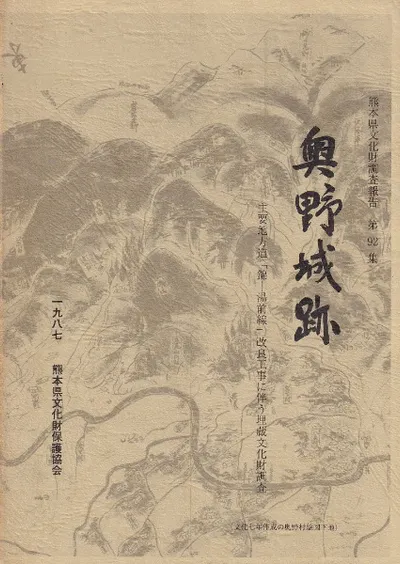 熊本県文化財調査報告 第92集
奥野城跡
―主要地方道「錦―湯前線」改良工事に伴う埋蔵文化財調査―
一九八七 熊本県文化財保護協会
(文化七年作成の奥野村絵図